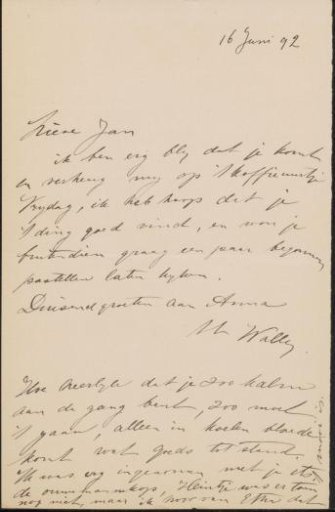 16 Juni 92
Lieve Jan
ik ben erg bly dat je komt
en verheug my op 't koffieuurtje
Vrydag, ik heb hoop dat je
't ding goed vind, en wou je
bovendien graag een paar begonnen
pastellen laten kyken.
Duizend groeten aan Anna
Willy
Hoe heerlyk dat je zoo kalm
aan de gang bent, zoo moet
't gaan, alleen in koelen bloede
komt wat goeds tot stand.
Ik was erg ingenomen met je
de
nog niet, maar ik